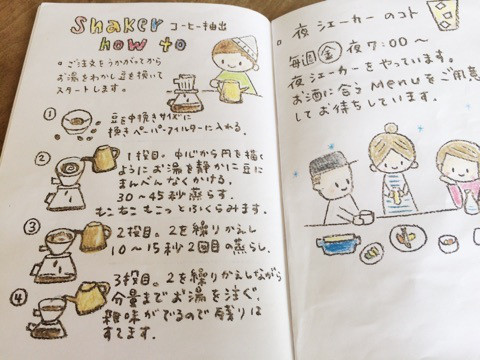 Shaker コーヒー抽出
how to
。ご注文をうかがってから
お湯をわかし豆を挽いて
スタートします。
① 豆を中挽きサイズに
挽きペーパーフィルターに入れる。
② 1投目。中心から円を描く
ようにお湯を静かに豆に
まんべんなくかける。
30〜45秒蒸らす。
むこむこむこっとふくらみます。
③ 2投目。2を繰りかえし
10〜15秒2回目の蒸らし。
④ 3投目。2を繰りかえしながら
分量までお湯を注ぐ。
雑味がでるので残りは
すてます。
。夜シェーカーのコト
毎週金夜7:00〜
夜シェーカーをやっています。
お酒に合うMenuをご用意
してお待ちしています。